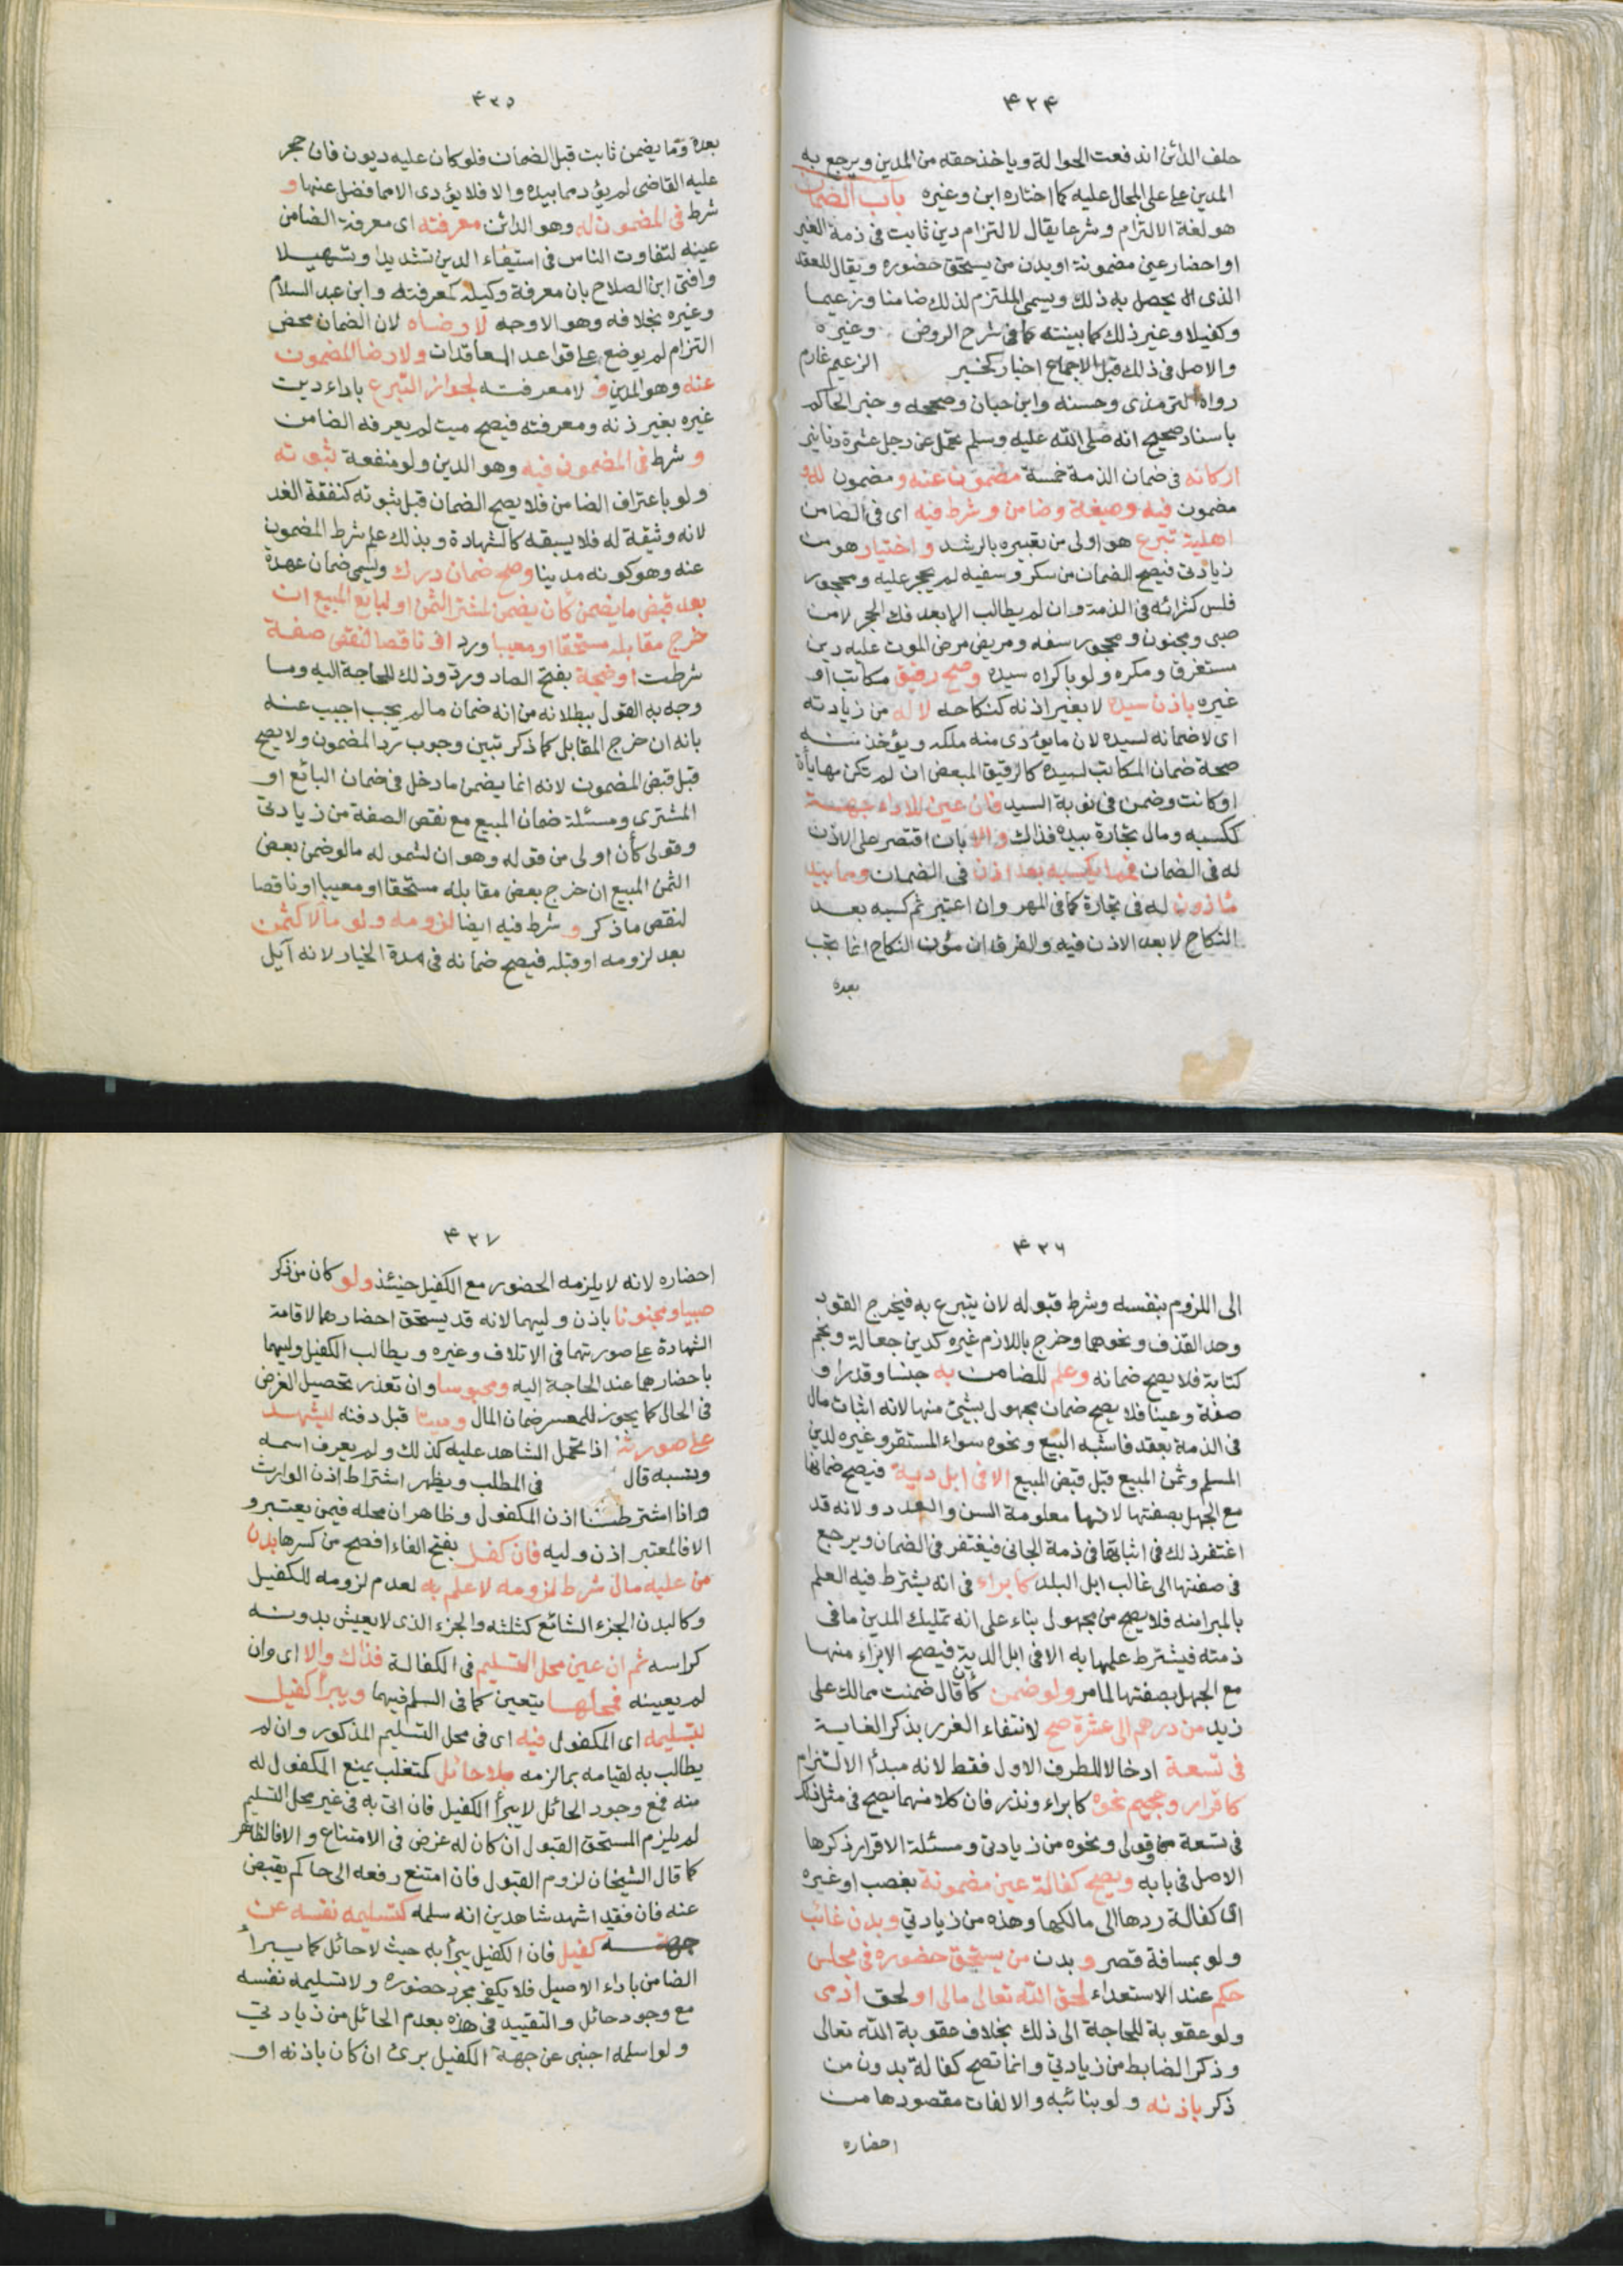 ۴۲۴
حلف الدائن اندفعت الحوالة وياخذ حقه من المدين ويرجع به
المدين على المحال عليه كما اختاره ابن وغيره باب الضمان
هو لغة الالتزام وشرعا يقال لالتزام دين ثابت فى ذمة الغير
او احضار عين مضمونة او بدن من يستحق حضوره ويقال للعقد
الذى يحصل به ذلك ويسمى الملتزم لذلك ضامنا وزعيما
وكفيلا وغير ذلك كما بينته فى شرح الروض وغيره
والاصل فى ذلك قبل الاجماع اخبار كخبر الزعيم غارم
رواه الترمذى وحسنه وابن حبان وصححه وخبر الحاكم
باسناد صحيح انه صلى الله عليه وسلم تحمل عن رجل عشرة دنانير
اركانه فى ضمان الذمة خمسة مضمون عنه ومضمون له و
مضمون فيه وصيغة وضامن وشرط فيه اى فى الضامن
اهلية تبرع هو اولى من تعبيره بالرشد واختيار هو من
زيادتى فيصح الضمان من سكر وسفيه لم يحجر عليه ومحجور
فلس كشرائه فى الذمة وان لم يطالب الا بعد فك الحجر لا من
صبى ومجنون ومحجور سفه ومريض مرض الموت عليه دين
مستغرق ومكره ولو باكراه سيده وصح رقيق مكاتب او
غيره باذن سيده لا بغير اذنه كنكاحه لا له من زيادته
اى لا ضمانه لسيده لان ما يؤدى منه ملكه ويؤخذ منه
صحة ضمان المكاتب لسيده كالرقيق المبعض ان لم تكن مهايأة
او كانت وضمن فى نوبة السيد فان عين للاداء جهة
ككسبه ومال تجارة بيده فذاك والا بان اقتصر على الاذن
له فى الضمان فمما يكسبه بعد اذن فى الضمان ومما بيد
ماذون له فى تجارة كما فى المهر وان اعتبر ثم كسبه بعد
النكاح لا بعد الاذن فيه والفرق ان مؤن النكاح انما تجب
بعده
۴۲۵
بعده وما يضمن ثابت قبل الضمان فلو كان عليه ديون فان حجر
عليه القاضى لم يؤد مما بيده والا فلا يؤدى الا مما فضل عنها و
شرط فى المضمون له وهو الدائن معرفته اى معرفة الضامن
عينه لتفاوت الناس فى استيفاء الدين تشديدا وتسهيلا
وافتى ابن الصلاح بان معرفة وكيله كمعرفته وابن عبد السلام
وغيره بخلافه وهو الاوجه لا رضاه لان الضمان محض
التزام لم يوضع على قواعد المعاقدات ولا رضا المضمون
عنه وهو المدين و لا معرفته لجواز التبرع باداء دين
غيره بغير ذنه ومعرفته فيصح ميت لم يعرفه الضامن
و شرط فى المضمون فيه وهو الدين ولو منفعة ثبوته
ولو باعتراف الضامن فلا يصح الضمان قبل ثبوته كنفقة الغد
لانه وثيقة له فلا يسبقه كالشهادة وبذلك علم شرط المضمون
عنه وهو كونه مدينا وصح ضمان درك ويسمى ضمان عهدة
بعد قبض ما يضمن كأن يضمن لمشتر الثمن او لبائع المبيع ان
خرج مقابله مستحقا او معيبا ورد او ناقصا لنقص صفة
شرطت او صنجة بفتح الصاد ورد وذلك للحاجة اليه وما
وجه به القول ببطلانه من انه ضمان ما لم يجب اجيب عنه
بانه ان خرج المقابل كما ذكر تبين وجوب رد المضمون ولا يصح
قبل قبض المضمون لانه انما يضمن ما دخل فى ضمان البائع او
المشترى ومسئلة ضمان المبيع مع نقص الصفة من زيادتى
وقولى كأن اولى من قوله وهو ان لشموله ما لو ضمن بعض
الثمن المبيع ان خرج بعض مقابله مستحقا او معيبا او ناقصا
لنقص ما ذكر و شرط فيه ايضا لزومه ولو مآلا كثمن
بعد لزومه او قبله فيصح ضمانه فى مدة الخيار لانه آيل
۴۲۶
الى اللزوم بنفسه وشرط قبوله لان يتبرع به فيخرج القود
وحد القذف ونحوهما وخرج باللازم غيره كدين جعالة ونجم
كتابة فلا يصح ضمانه وعلم للضامن به جنسا وقدرا و
صفة وعينا فلا يصح ضمان مجهول بشيئ منها لانه اثبات مال
فى الذمة بعقد فاشبه البيع ونحوه سواء المستقر وغيره لدين
المسلم وثمن المبيع قبل قبض المبيع الا فى ابل دية فيصح ضمانها
مع الجهل بصفتها لانها معلومة السن والعدد ولانه قد
اغتفر ذلك فى اثباتها فى ذمة الجانى فيغتفر فى الضمان ويرجع
فى صفتها الى غالب ابل البلد كابراء فى انه يشترط فيه العلم
بالمبرا منه فلا يصح من مجهول بناء على انه تمليك المدين ما فى
ذمته فيشترط علمها به الا فى ابل الدية فيصح الابراء منها
مع الجهل بصفتها لما مر ولو ضمن كأن قال ضمنت مما لك على
زيد من درهم الى عشرة صح لانتفاء الغرر بذكر الغاية
فى تسعة ادخالا للطرف الاول فقط لانه مبدأ الالتزام
كاقرار ونحوه كابراء ونذر فان كلا منهما يصح فى مثل ذلك
فى تسعة وقولى ونحوه من زيادتى ومسئلة الاقرار ذكرها
الاصل فى بابه ويصح كفالة عين مضمونة بغصب او غيره
اى كفالة ردها الى مالكها وهذه من زيادتي وبدن غائب
ولو بمسافة قصر و بدن من يستحق حضوره فى مجلس
حكم عند الاستعداء لحق الله تعالى مالى او لحق ادمى
ولو عقوبة للحاجة الى ذلك بخلاف عقوبة الله تعالى
وذكر الضابط من زيادتي وانما تصح كفالة بدون من
ذكر باذنه ولو بنائبه والا لفات مقصودها من
احضاره
۴۲۷
احضاره لانه لا يلزمه الحضور مع الكفيل حينئذ ولو كان من ذكر
صبيا ومجنونا باذن وليهما لانه قد يستحق احضارهما لاقامة
الشهادة على صورتهما فى الاتلاف وغيره ويطالب الكفيل وليهما
باحضارهما عند الحاجة اليه ومحبوسا وان تعذر تحصيل الغرض
فى الحال كما يجوز للمعسر ضمان المال وميتا قبل دفنه ليشهد
على صورته اذا تحمل الشاهد عليه كذلك ولم يعرف اسمه
ونسبه قال فى المطلب ويظهر اشتراط اذن الوارث
اذا اشترطنا اذن المكفول وظاهر ان محله فيمن يعتبر و
الا فالمعتبر اذن وليه فان كفل بفتح الفاء افصح من كسرها بدن
من عليه مال شرط لزومه لا علم به لعدم لزومه للكفيل
وكالبدن الجزء الشائع كثلثه والجزء الذى لا يعيش بدونه
كراسه ثم ان عين محل التسليم فى الكفالة فذاك والا اى وان
لم يعينه فمحلها يتعين كما فى السلم فيهما ويبرأ كفيل
بتسليمه اى المكفول فيه اى فى محل التسليم المذكور وان لم
يطالب به لقيامه بما لزمه بلا حائل كمتغلب يمنع المكفول له
منه فمع وجود الحائل لا يبرأ الكفيل فان اتى به فى غير محل التسليم
لم يلزم المستحق القبول ان كان له غرض فى الامتناع والا فالظاهر
كما قال الشيخان لزوم القبول فان امتنع رفعه الى حاكم يقبض
عنه فان فقد اشهد شاهدين انه سلمه كتسليمه نفسه عن
جهة كفيل فان الكفيل يبرأ به حيث لا حائل كما يبرأ
الضامن باداء الاصيل فلا يكفى مجرد حضوره ولا تسليمه نفسه
مع وجود حائل والتقييد فى هذه بعدم الحائل من زيادتي
ولو سلمه اجنبى عن جهة الكفيل برئ ان كان باذنه او